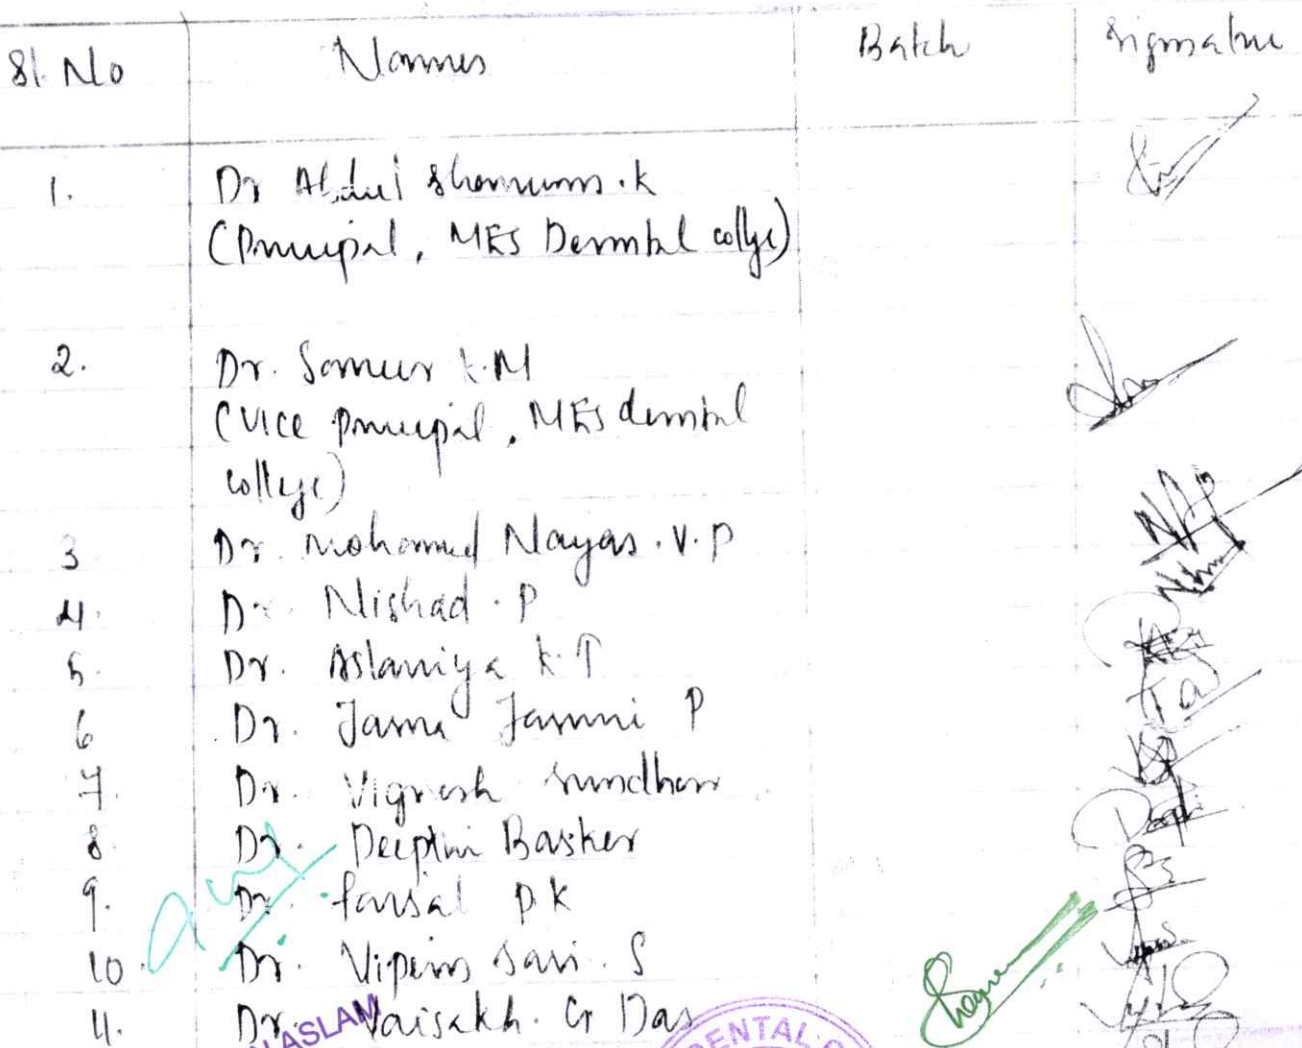 Sl. No Names Batch Signature
1. Dr Abdul Shamum.K
(Principal, MES Dental college)
2. Dr. Sameer K.M
(Vice principal, MES dental
college)
3 Dr. Mohamed Nayas.V.P
4. Dr. Nishad.P
5. Dr. Aslamiya K.T
6 Dr. Jasmi P
7. Dr. Vignesh
8. Dr. Deepthi Basker
9. Dr. Faisal P K
10. Dr. Vipin S
11. Dr. Vaisakh. G Das
ASLAM
DENTAL